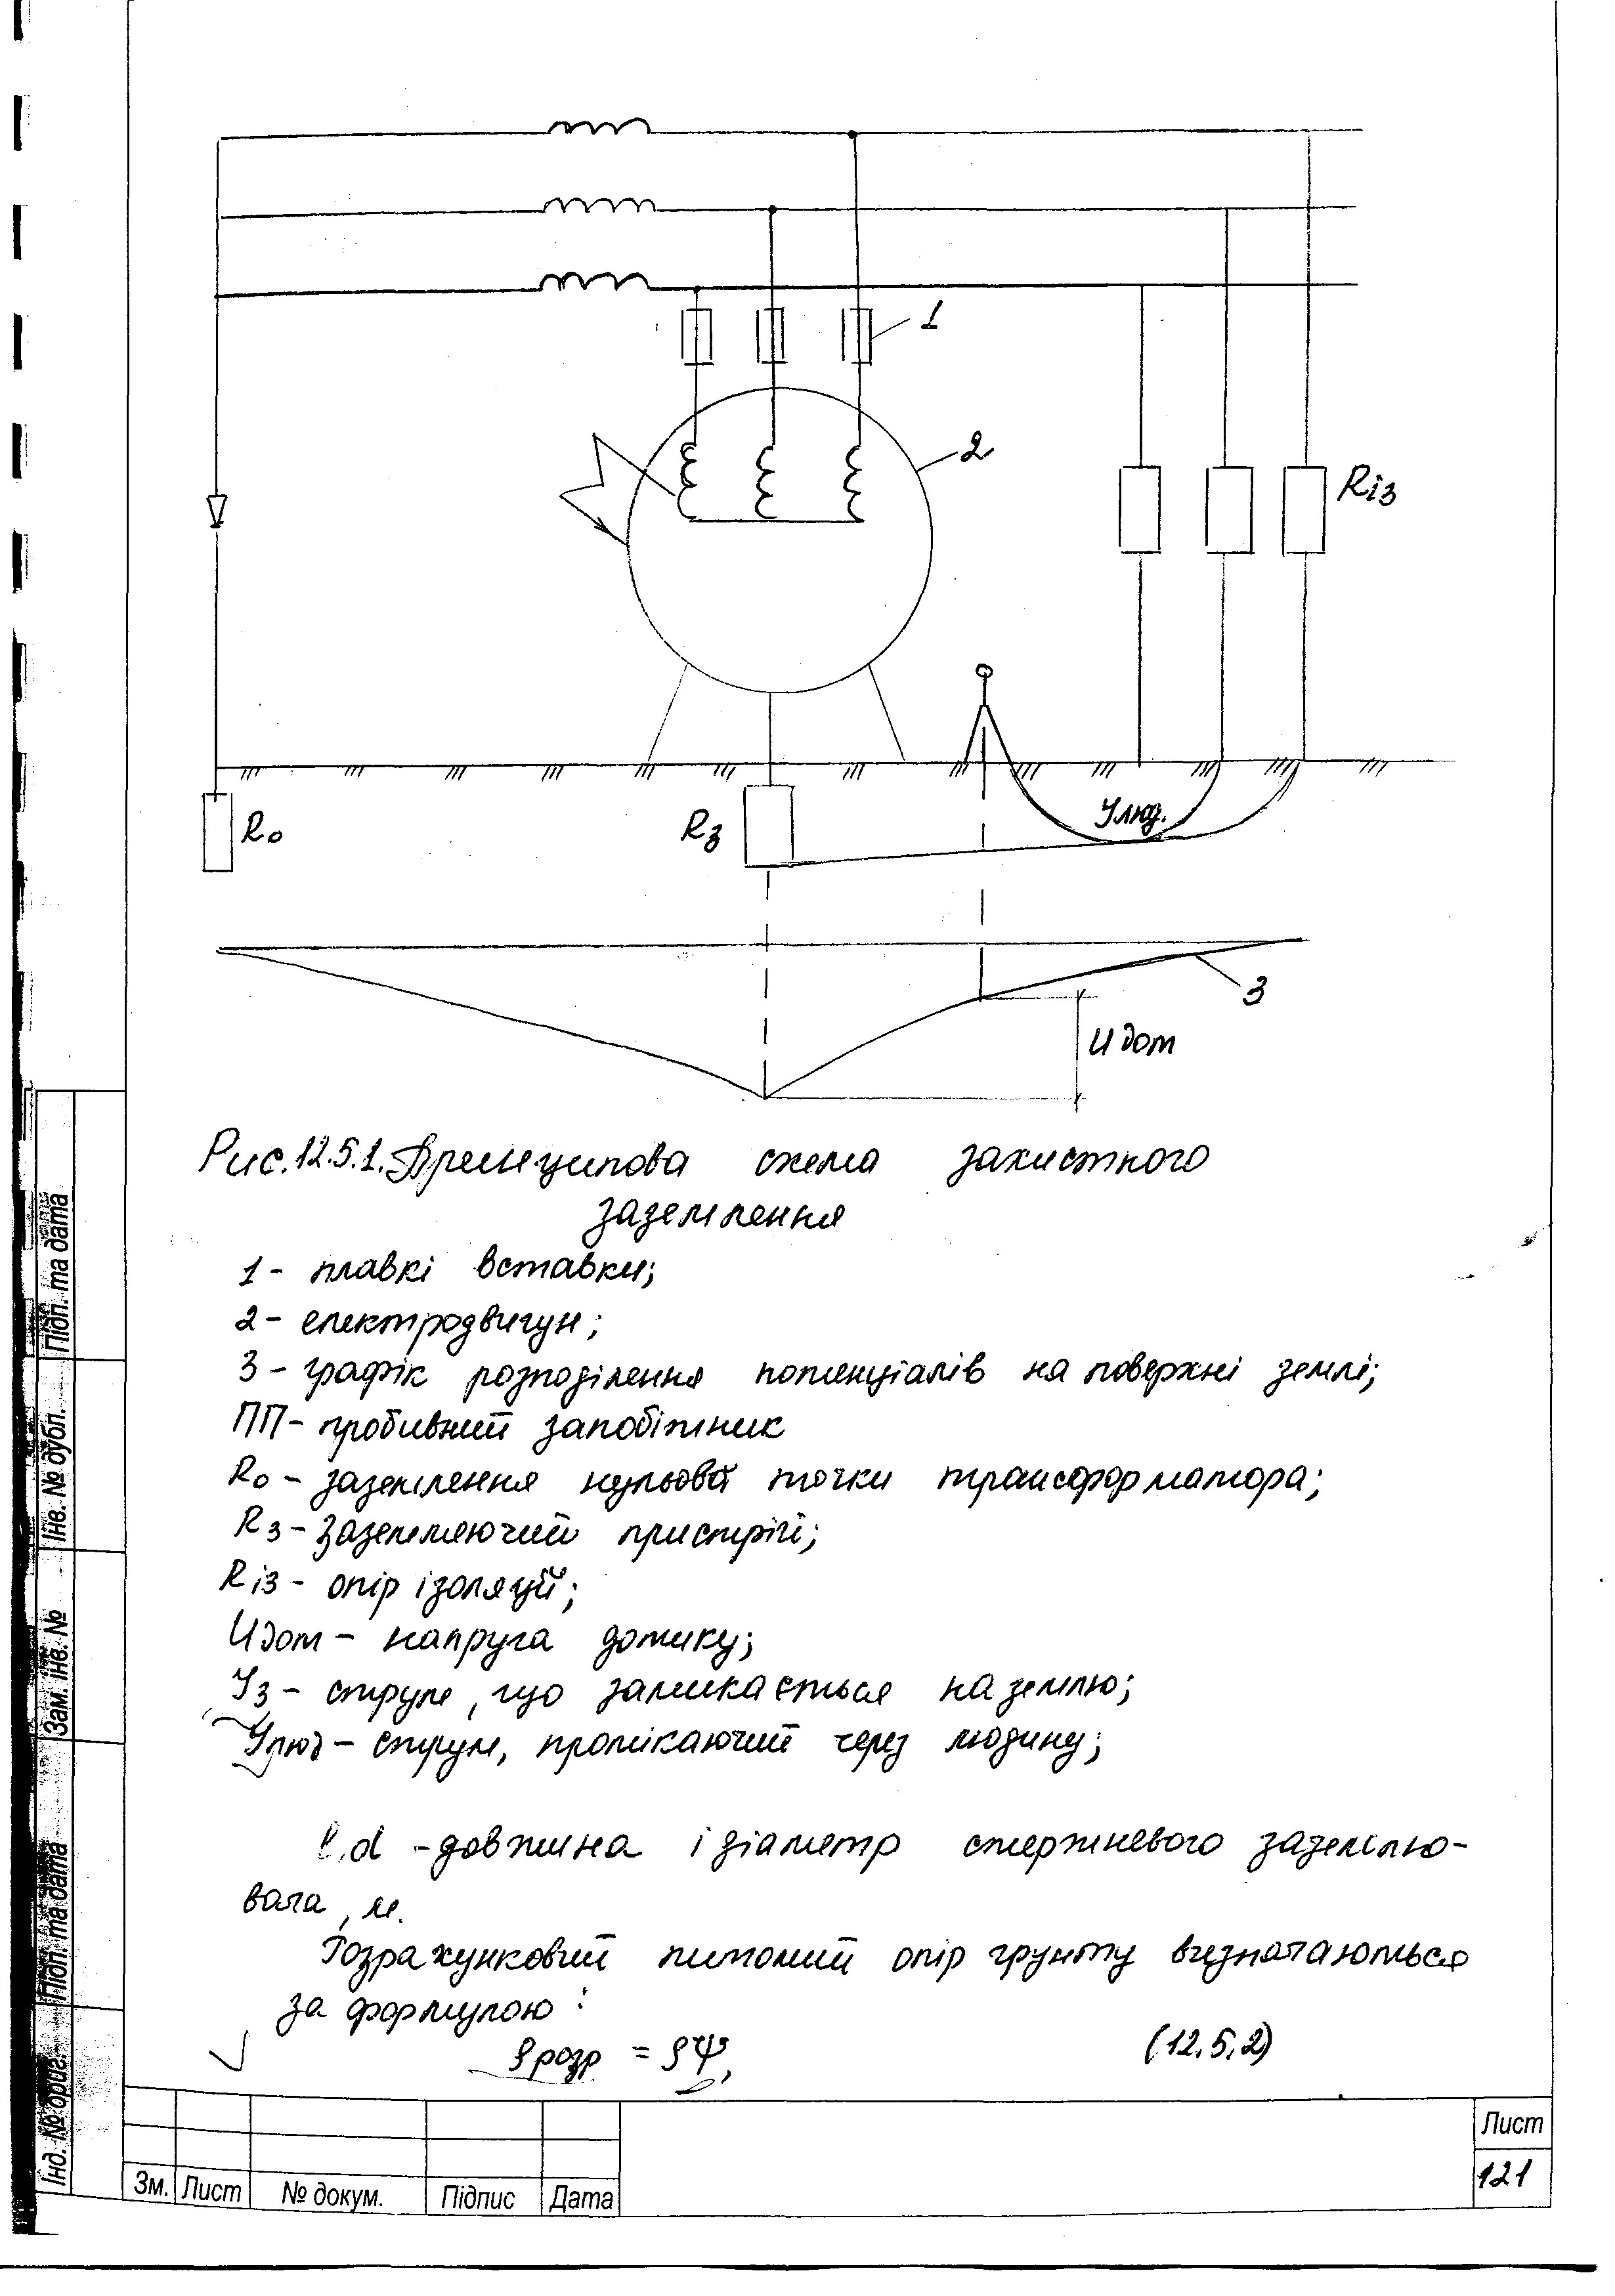 1
2
Rіз
Rо
Rз
Iлюд.
3
U дот
Рис.12.5.1. Принципова схема захистного
заземлення
1 - плавкі вставки;
2 - електродвигун;
3 - графік розподілення потенціалів на поверхні землі;
ПП - пробивний запобіжник
Rо - заземлення нульової точки трансформатора;
Rз - Заземлюючий пристрій;
Rіз - опір ізоляції;
Uдот - напруга дотику;
Iз - струм, що замикається на землю;
Iлюд - струм, протікаючий через людину;
l,d - довжина і діаметр стержневого заземлю-
вача, м.
Розрахунковий питомий опір грунту визначаються
за формулою:
ρрозр = ρψ, (12.5.2)
Підп. та дата
Інв. № дубл.
Зам. інв. №
Підп. та дата
Інд. № ориг.
Зм. Лист № докум. Підпис Дата
Лист
121